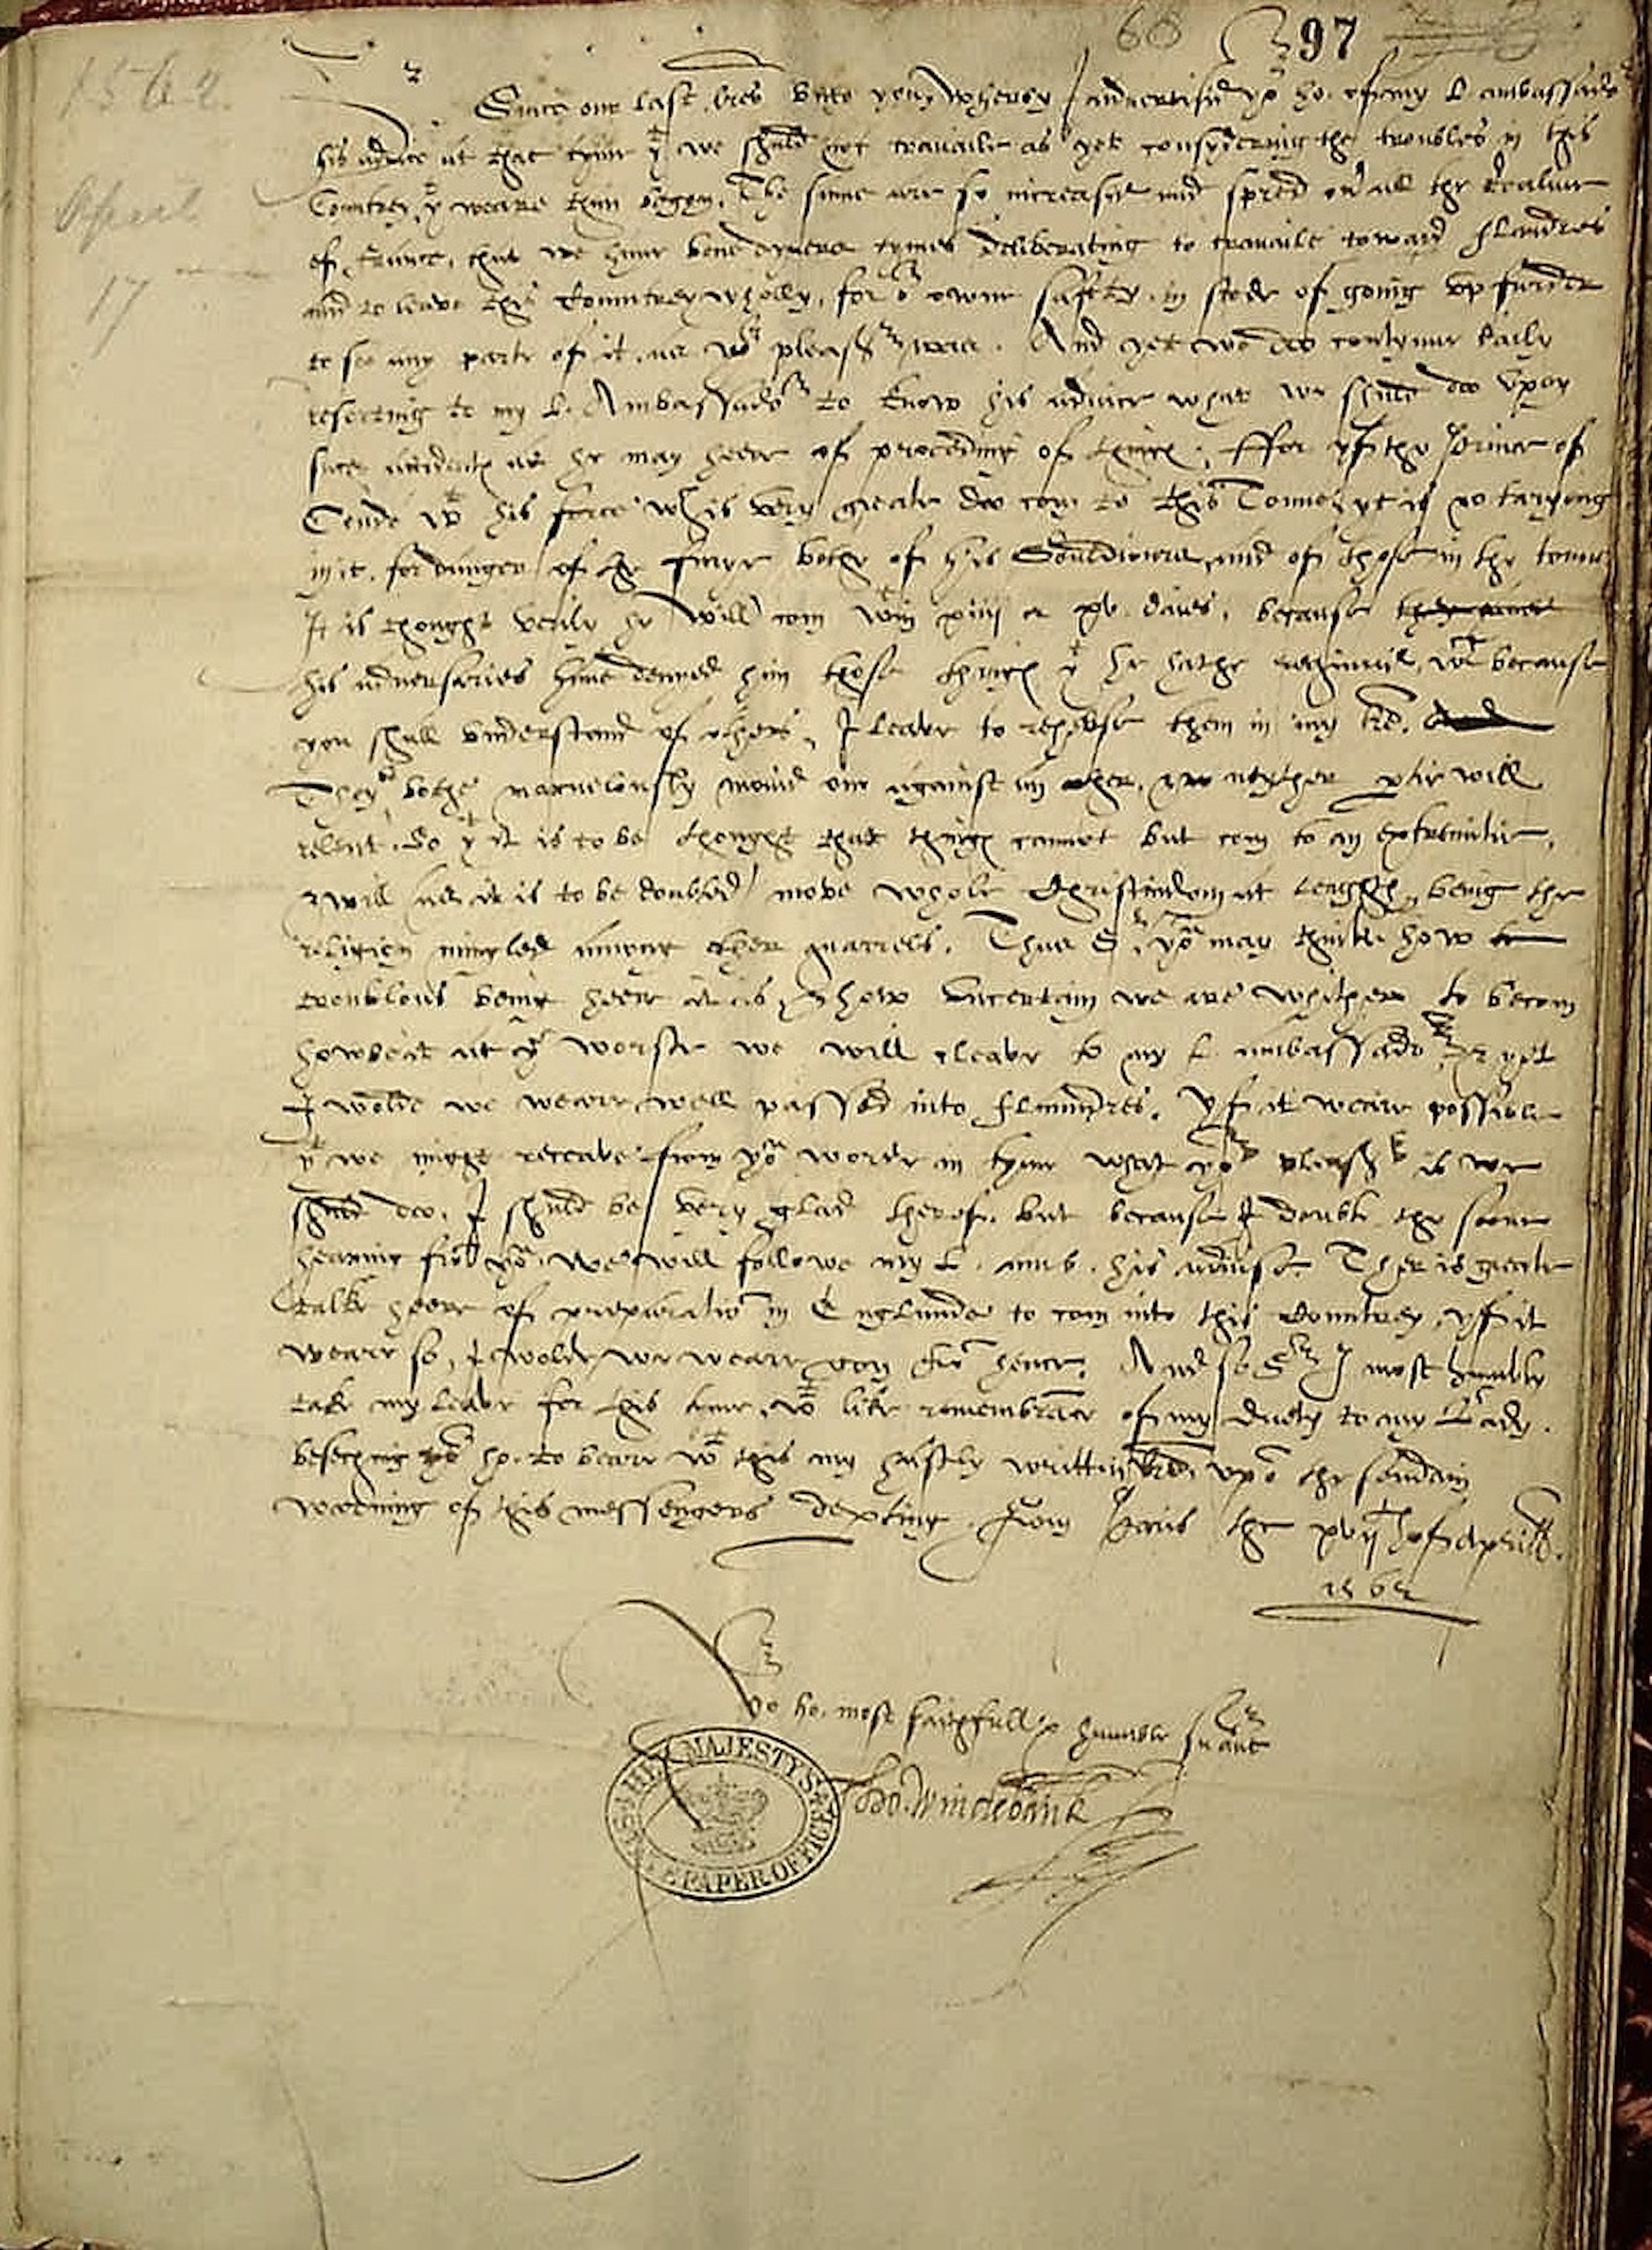 60 97
1562.
Since our last lres unto you, wherby I advertised yor ho. of my L ambassador
his advice at that tyme yt we shuld not travaile as yet consydering the troubles in this
April
Countrey yt weare then begon. The same are so increased and spred over all the Realme
of France, that we have bene dyvers tymes deliberating to travaile toward Flandres
17
and to leave this Countrey wholly, for or owne saftey, in stede of going up furder
to see any parte of it, as yor pleasr was. And yet we do contynue daily
resorting to my L. Ambassador to know his advice what we shuld do upon
such accidents as he may heer of proceding of things. Ffor yf the Prince of
Conde wt his force wch is very greate do com to this Towne, yt is no taryeng
in it, for daunger of the furye bothe of his Souldiours and of those in the towne
It is thought verily he will com wtin xiiij or xv. daies, because
his adversaries have denyed him those things yt he hathe required, wch because
you shall understand of others, I leave to reherse them in my lre.
They bothe marvelously moved one against an other, & neyther ptie will
relent. So yt it is to be thought that things cannot but com to an extremitie,
& will (as it is to be doubted) move whole Christendom at length, being the
religion mingled among other quarrels. Thus Sr, yor may thinke how
troublous being heer it is, & how uncertain we are whither to becom
howbeit at ye worste we will cleave to my L. ambassador, & yet
I wolde we weare well passed into Flaundres. Yf it weare possible
yt we might receave from yor worde in tyme what yor pleasr is we
shuld do, I shuld be very glad therof. but because I doubte the soone
hearing fro you, we will followe my L. amb. his advise. Ther is greate
talke heere of preparatio in Englande to com into this Countrey, yf it
weare so, I wolde we weare gon fro hence. And so Sr I most humbly
take my leave for this tyme, wt like remembrance of my duety to my Lady.
beseching yor ho. to beare wt this my hastly written lre, upo the sendain
warning of this messengers depting. From Paris the xvijth of Aprill.
1562
Yor ho. most faithfull & humble srvant
Tho. Windebank
HER MAJESTY'S STATE PAPER OFFICE